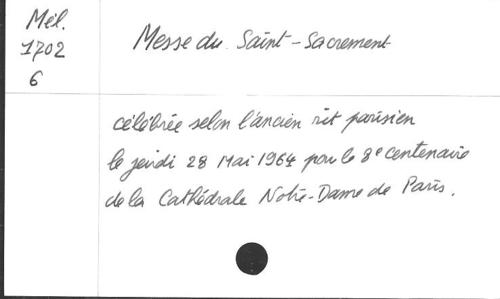 Mél.
1702
6
Messe du Saint-Sacrement
célébrée selon l'ancien rit parisien
le jeudi 28 Mai 1964 pour le 8e centenaire
de la Cathédrale Notre-Dame de Paris.